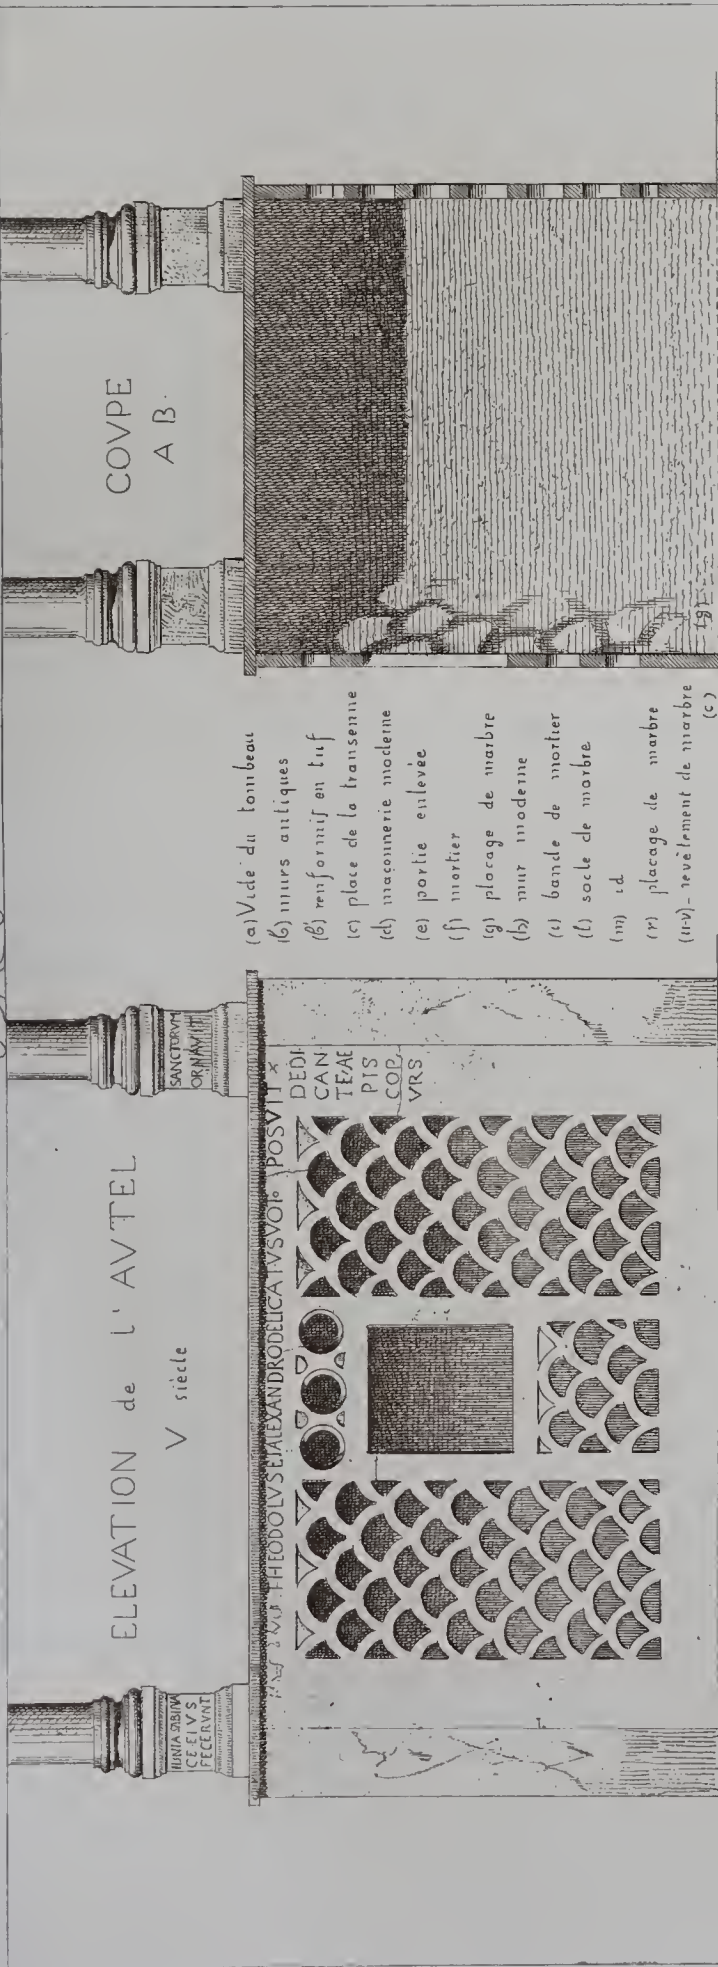 ELEVATION de L'AVTEL
V siècle
IUNIA SABINA
C E EIVS
FECERVNT
SANCTORVM
ORNAVIT
THEODOLVSETALEXANDRO DELICATVSVOT POSVIT
DEDI
CAN
TE AE
PIS
COP
VRS
(a) Vide du tombeau
(b) murs antiques
(b') renformis en tuf
(c) place de la transenne
(d) maçonnerie moderne
(e) portie enlevée
(f) mortier
(g) plocage de marbre
(h) mur moderne
(i) bande de mortier
(l) socle de marbre
(m) id
(r) placage de marbre
(u-v) - revêtement de marbre
(c)
COVPE
A B.
(g)